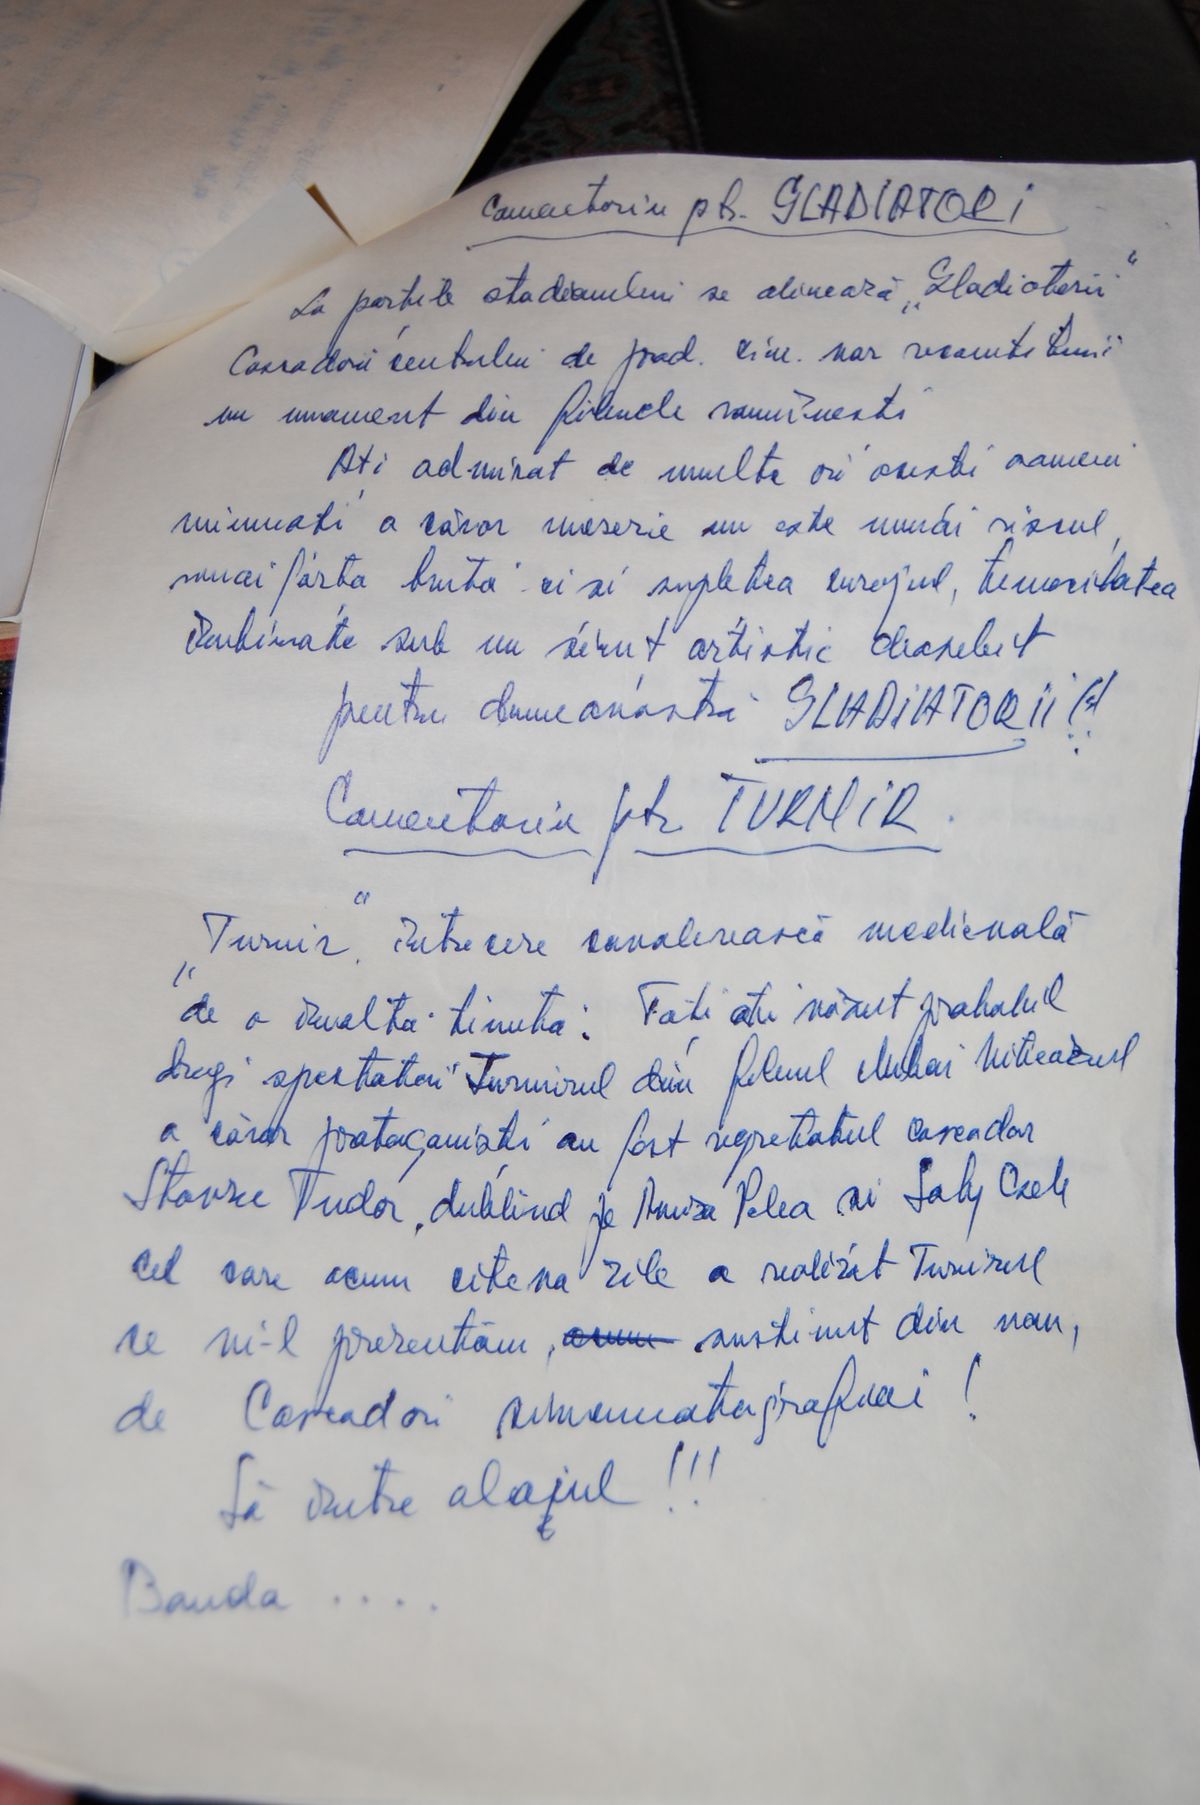 Comentoriu ptr. GLADIATORI
La portile stadionului se aliniază „Gladiatorii"
Cascadorii centrului de prod. cin. vor reconstitui
un moment din filmele romînesti
Ati admirat de multe ori acesti oameni
minunati a căror meserie nu este numai riscul,
numai forta bruta ci si supletea curajul, temeritatea
îmbinate sub un simt artistic deosebit
pentru dumeavoastră GLADIATORII!!
Comentariu ptr TURNIR.
„Turnir" întrecere cavalerească medievală
de o înaltă tinută: Toti ati văzut probabil
dragi spectatori Turnirul din filmul Mihai Viteazul
a căror protagonisti au fost regretatul cascador
Stavru Tudor, dublind pe Amza Pelea si Saby Czele
cel care acum citeva zile a realizat Turnirul
ce vi-l prezentăm, sustinut din nou,
de Cascadori cinematografiei!
Să intre alaiul!!!
Banda ....